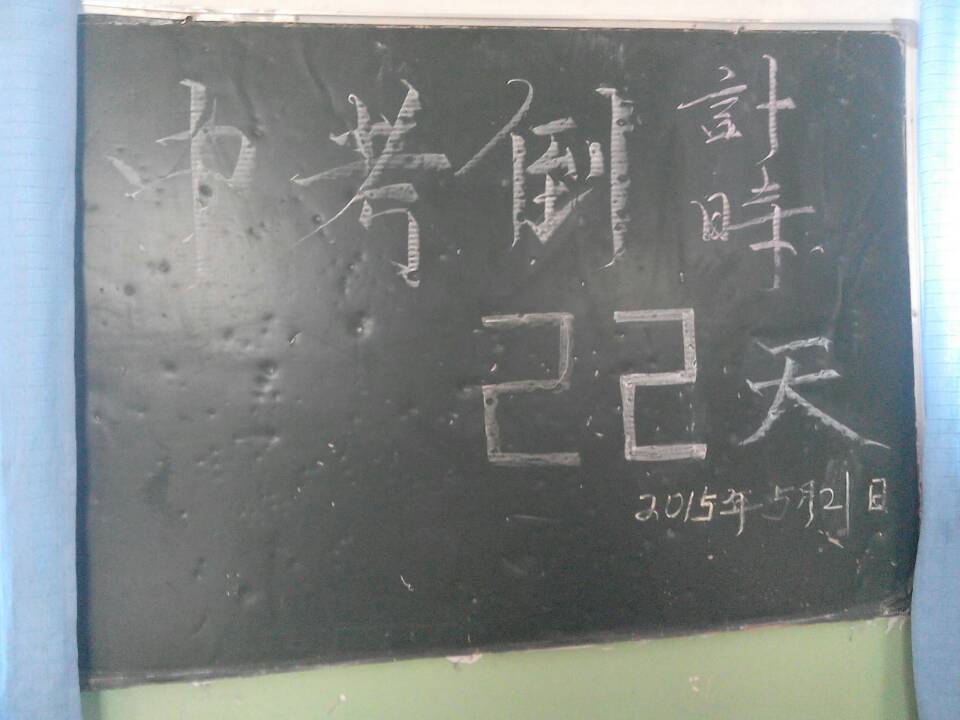 中考倒計時
22天
2015年5月21日